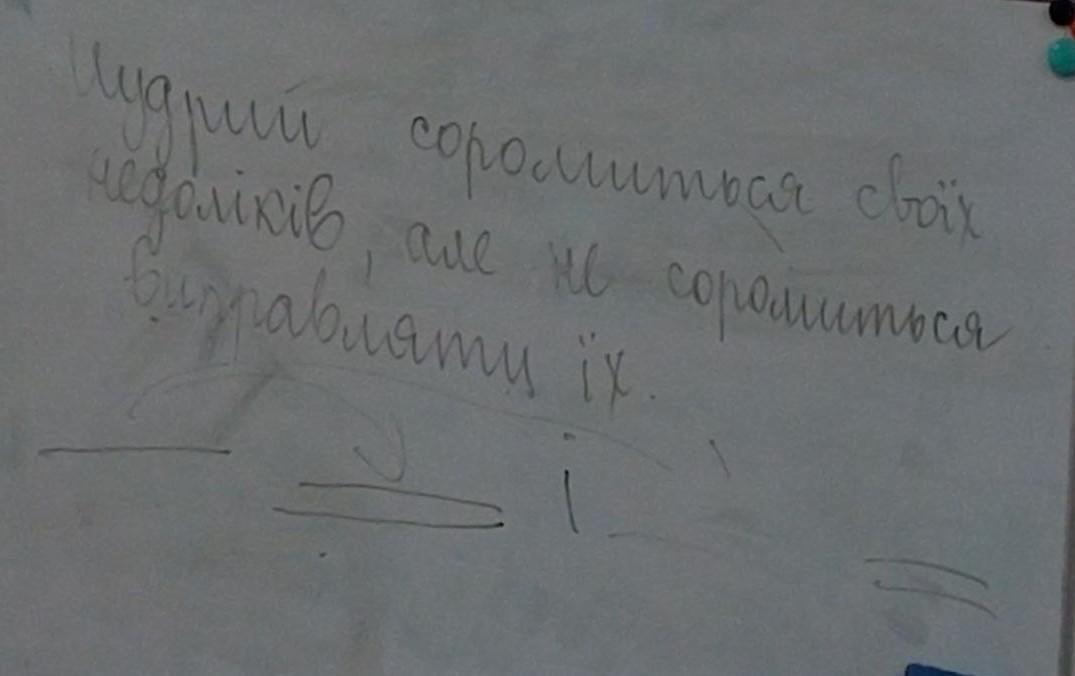 Мудрий соромиться своїх
недоліків, але не соромиться
виправляти їх.
і